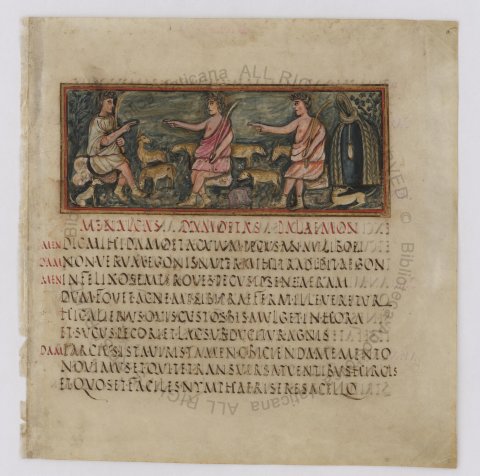 MENALCAS DAMOETAS PALAEMON
MEN DICMIHIDAMOETACVIVMPECVSANMELIBOEI
DAM NONVERVMAEGONISNVPERMIHITRADIDITAEGON
MEN INFELIXOSEMPEROVESPECVSIPSENEAERAM
DVMFOVETACNEMESIBIPRAEFERATILLAVERETVR
HICALIENVSOVISCVSTOSBISMVLGETINHORA
ETSVCVSPECORIETLACSVBDVCITVRAGNIS
DAM PARCIVSISTAVIRISTAMENOBICIENDAMEMENTO
NOVIMVSETQVITETRANSVERSATVENTIBVSHIRCIS
ETQVOSETFACILESNYMPHAERISERESACELLO